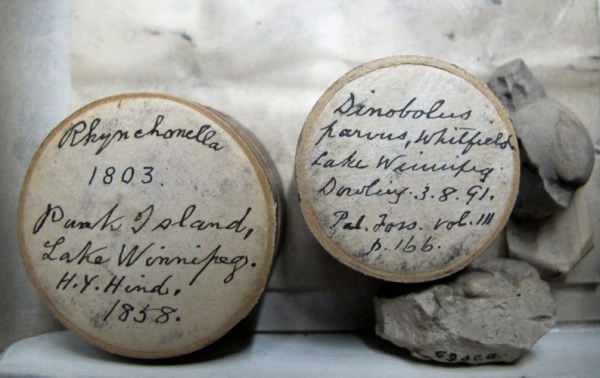 Rhynchonella
1803.
Punk Island,
Lake Winnipeg.
H.Y. Hind.
1858.
Dinobolus
parvus, Whitfield
Lake Winnipeg.
Dowling. 3.8.91.
Pal. Foss. vol. III
p. 166.